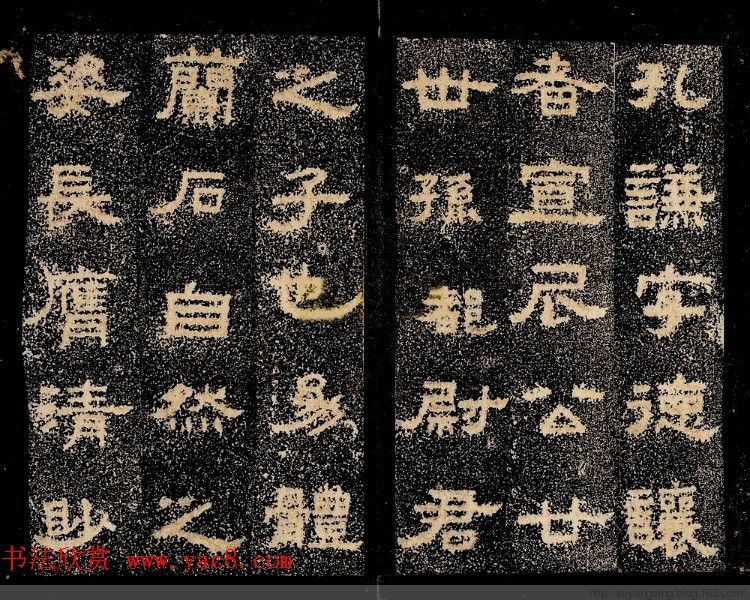 孔謙字德讓
者宣尼公廿
世孫都尉君
之子也幼體
蘭石自然之
姿長膺清眇
书法欣赏 www.yac8.com
http://taiyangtang.blog.163.com